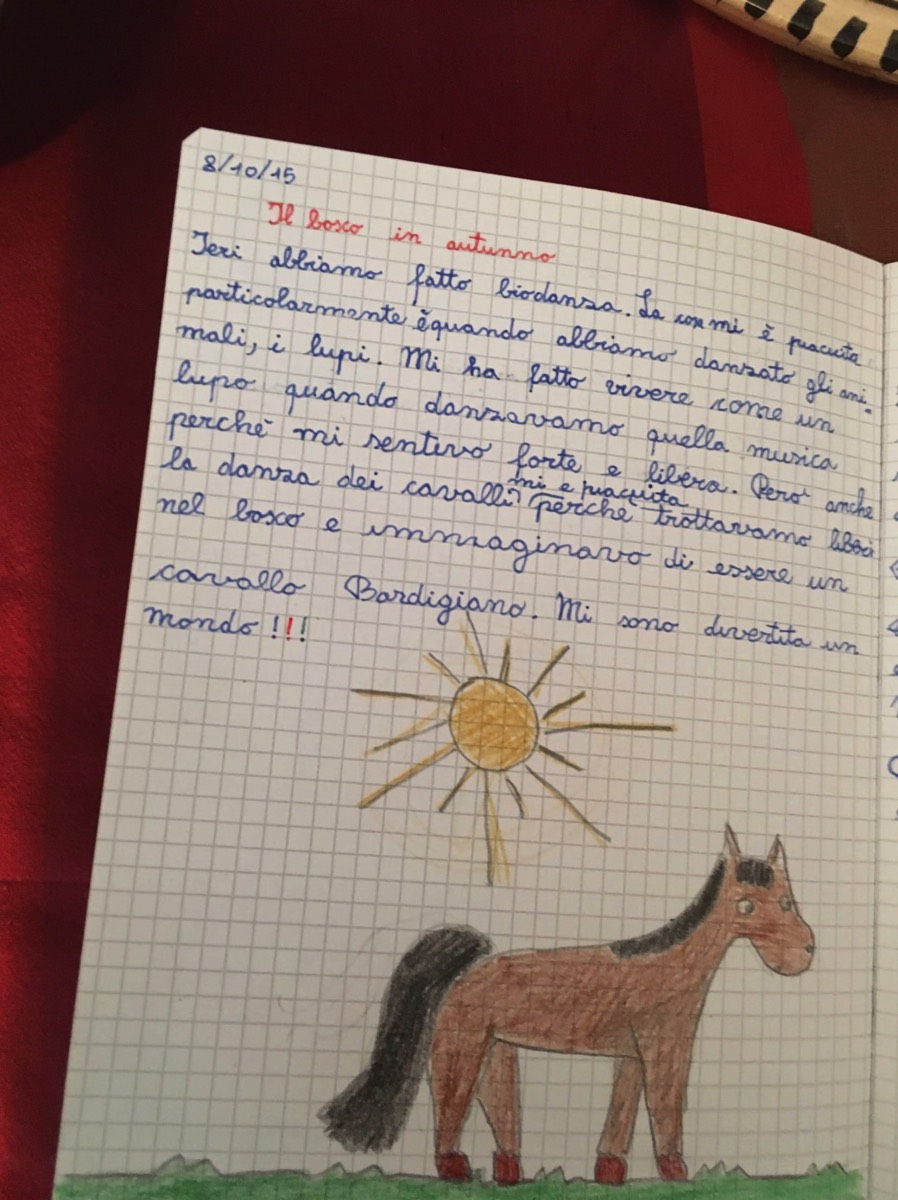 8/10/15
Il bosco in autunno
Ieri abbiamo fatto biodanza. La cosa mi è piaciuta
particolarmente è quando abbiamo danzato gli ani-
mali, i lupi. Mi ha fatto vivere come un
lupo quando danzavamo quella musica
perchè mi sentivo forte e libera. Però anche
la danza dei cavalli mi è piaciuta perchè trottavamo liberi
nel bosco e immaginavo di essere un
cavallo Bardigiano. Mi sono divertita un
mondo !!!